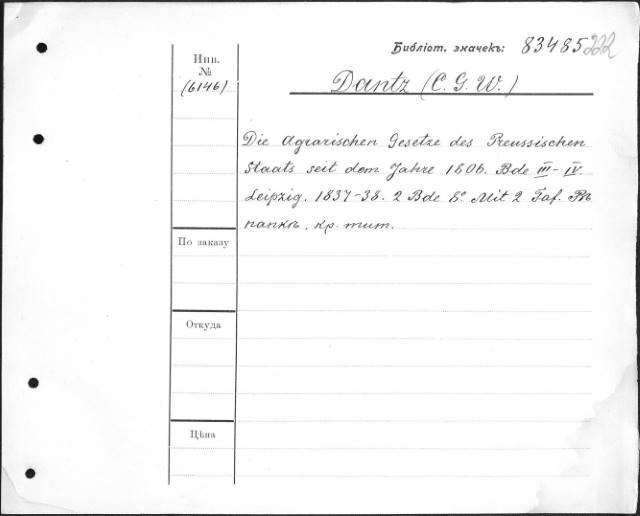 Библіот. значекъ: 83485 222
Инв.
№
(6146)
Dantz (C. G. W.)
Die Agrarischen Gesetze des Preussischen
Staats seit dem Jahre 1806. Bde III-IV.
Leipzig. 1837-38. 2 Bde 8º Mit 2 Taf. Въ
папкѣ, кр. тит.
По заказу
Откуда
Цѣна